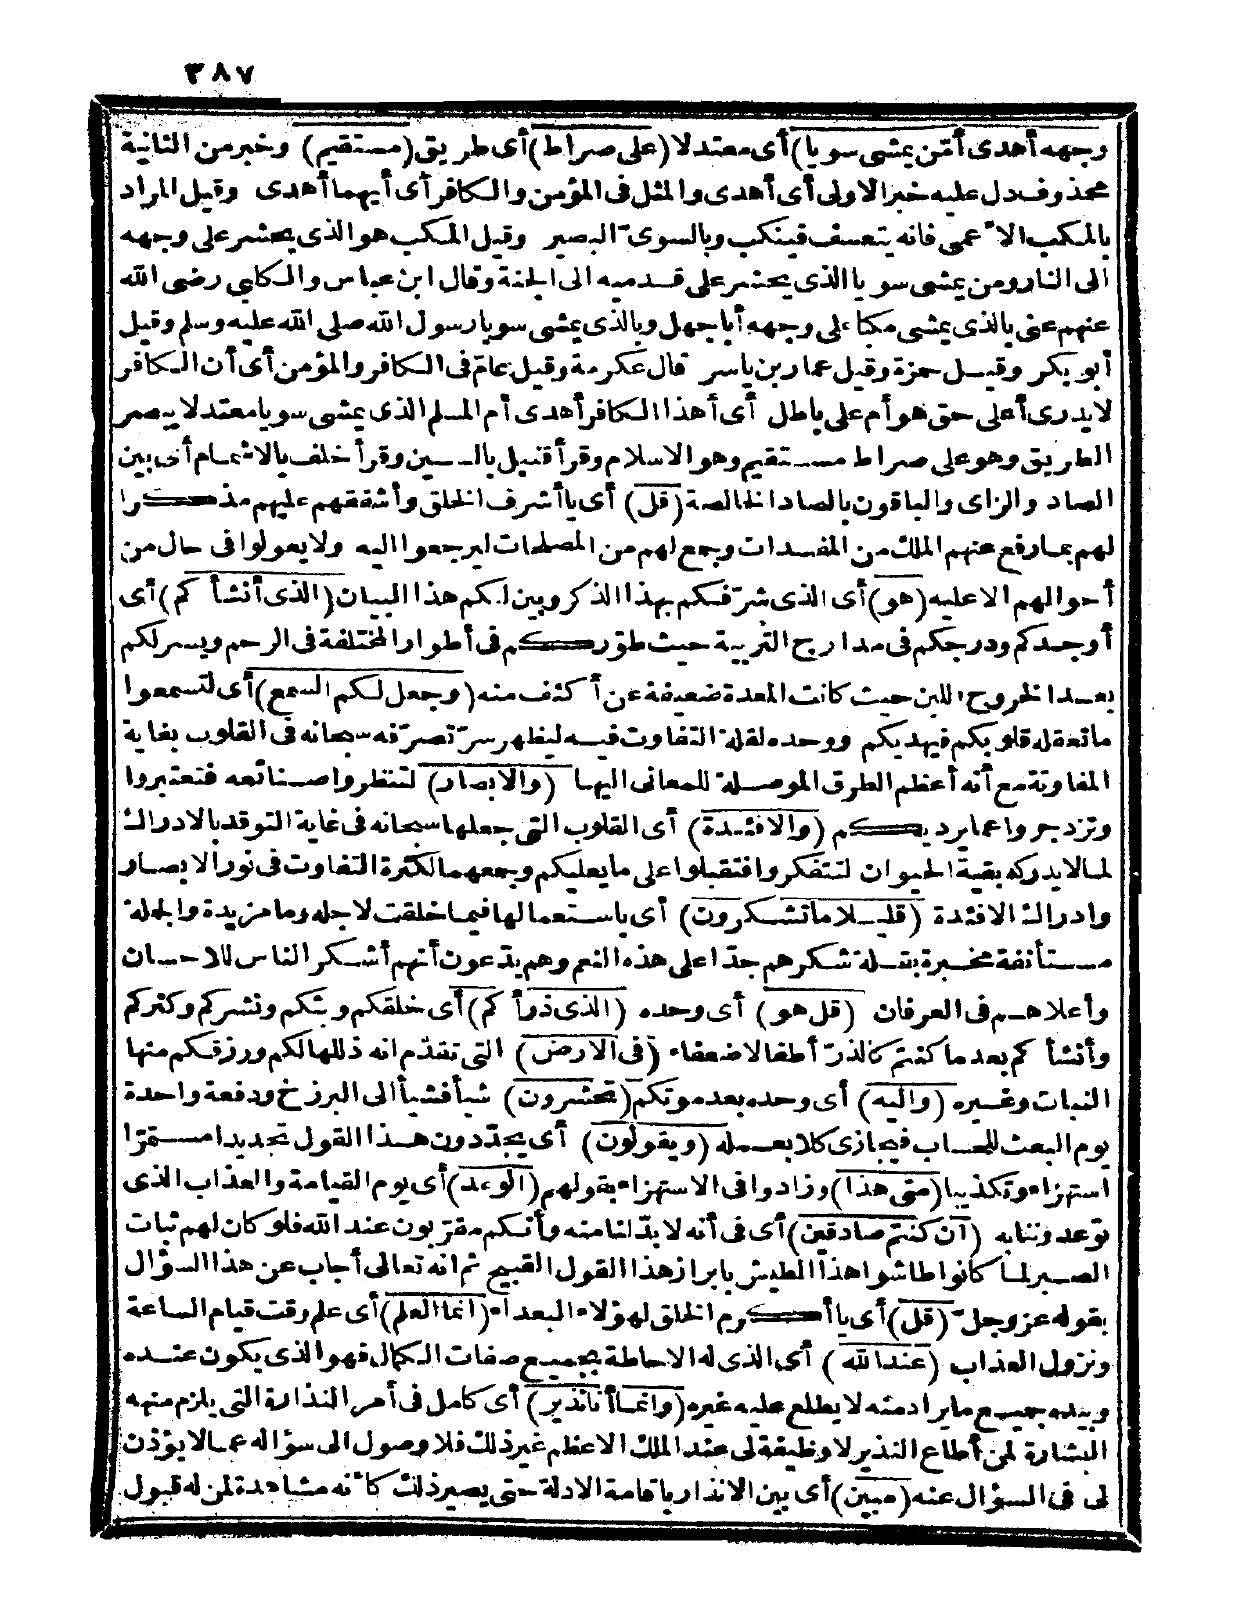 ٣٨٧
وجهه أهدى أمّن يمشى سويا) أى معتدلا (على صراط) أى طريق (مستقيم) وخبر من الثانية
محذوف دل عليه خبر الاولى أى أهدى والمثل فى المؤمن والكافر أى أيهما أهدى وقيل المراد
بالمكب الاعمى فانه يتعسف فينكب وبالسوىّ البصير وقيل المكب هو الذى يحشر على وجهه
الى النار ومن يمشى سويا الذى يحشر على قدميه الى الجنة وقال ابن عباس والكلبى رضى الله
عنهم عنى بالذى يمشى مكبا على وجهه أبا جهل وبالذى يمشى سويا رسول الله صلى الله عليه وسلم وقيل
أبو بكر وقيل حمزة وقيل عمار بن ياسر قال عكرمة وقيل عامّ فى الكافر والمؤمن أى أن الكافر
لا يدرى أعلى حق هو أم على باطل أى أهذا الكافر أهدى أم المسلم الذى يمشى سويا معتدلا يبصر
الطريق وهو على صراط مستقيم وهو الاسلام وقرأ قنبل بالسين وقرأ خلف بالاشمام أى بين
الصاد والزاى والباقون بالصاد الخالصة (قل) أى يا أشرف الخلق وأشفقهم عليهم مذكرا
لهم بما رفع عنهم الملك من المفسدات وجمع لهم من المصلحات ليرجعوا اليه ولا يعولوا فى حال من
أحوالهم الا عليه (هو) أى الذى شرّفكم بهذا الذكر وبين لكم هذا البيان (الذى أنشأكم) أى
أوجدكم ودرجكم فى مدارج التربية حيث طوّركم فى أطوار المختلفة فى الرحم ويسر لكم
بعد الخروج اللبن حيث كانت المعدة ضعيفة عن أكثف منه (وجعل لكم السمع) أى لتسمعوا
ما تعقله قلوبكم فيهديكم ووحده لقلة التفاوت فيه ليظهر سرّ تصرّفه سبحانه فى القلوب بغاية
المفاوتة مع أنه أعظم الطرق الموصلة للمعانى اليها (والابصار) لتنظروا صنائعه فتعتبروا
وتزدجروا عما يرديكم (والافئدة) أى القلوب التى جعلها سبحانه فى غاية التوقد بالادراك
لما لا يدركه بقية الحيوان لتتفكروا فتقبلوا على ما يعليكم وجمعهما لكثرة التفاوت فى نور الابصار
وادراك الافئدة (قليلا ما تشكرون) أى باستعمالها فيما خلقت لاجله وما مزيدة والجملة
مستأنفة مخبرة بقلة شكرهم جدّا على هذه النعم وهم يدّعون أنهم أشكر الناس للاحسان
وأعلاهم فى العرفان (قل هو) أى وحده (الذى ذرأكم) أى خلقكم وبثكم ونشركم وكثركم
وأنشأكم بعد ما كنتم كالذرّ أطفالا ضعفاء (فى الارض) التى تقدّم انه ذللها لكم ورزقكم منها
النبات وغيره (واليه) أى وحده بعد موتكم (تحشرون) شيأ فشيأ الى البرزخ ودفعة واحدة
يوم البعث للحساب فيجازى كلا بعمله (ويقولون) أى يجدّدون هذا القول تجديدا مستمرّا
استهزاء وتكذيبا (متى هذا) وزادوا فى الاستهزاء بقولهم (الوعد) أى يوم القيامة والعذاب الذى
توعدوننا به (ان كنتم صادقين) أى فى أنه لا بدّ لنا منه وأنكم مقرّبون عند الله فلو كان لهم ثبات
الصبر لما كانوا طاشوا هذا الطيش بابراز هذا القول القبيح ثم انه تعالى أجاب عن هذا السؤال
بقوله عز وجلّ (قل) أى يا أكرم الخلق لهؤلاء البعداء (انما العلم) أى علم وقت قيام الساعة
ونزول العذاب (عند الله) أى الذى له الاحاطة بجميع صفات الكمال فهو الذى يكون عنده
وبيده جميع ما يراد منه لا يطلع عليه غيره (وانما أنا نذير) أى كامل فى أمر النذارة التى يلزم منها
البشارة لمن أطاع النذير لا وظيفة لى عند الملك الاعظم غير ذلك فلا وصول الى سؤاله عما لا يؤذن
لى فى السؤال عنه (مبين) أى بين الانذار باقامة الادلة حتى يصير ذلك كأنه مشاهدة لمن له قبول